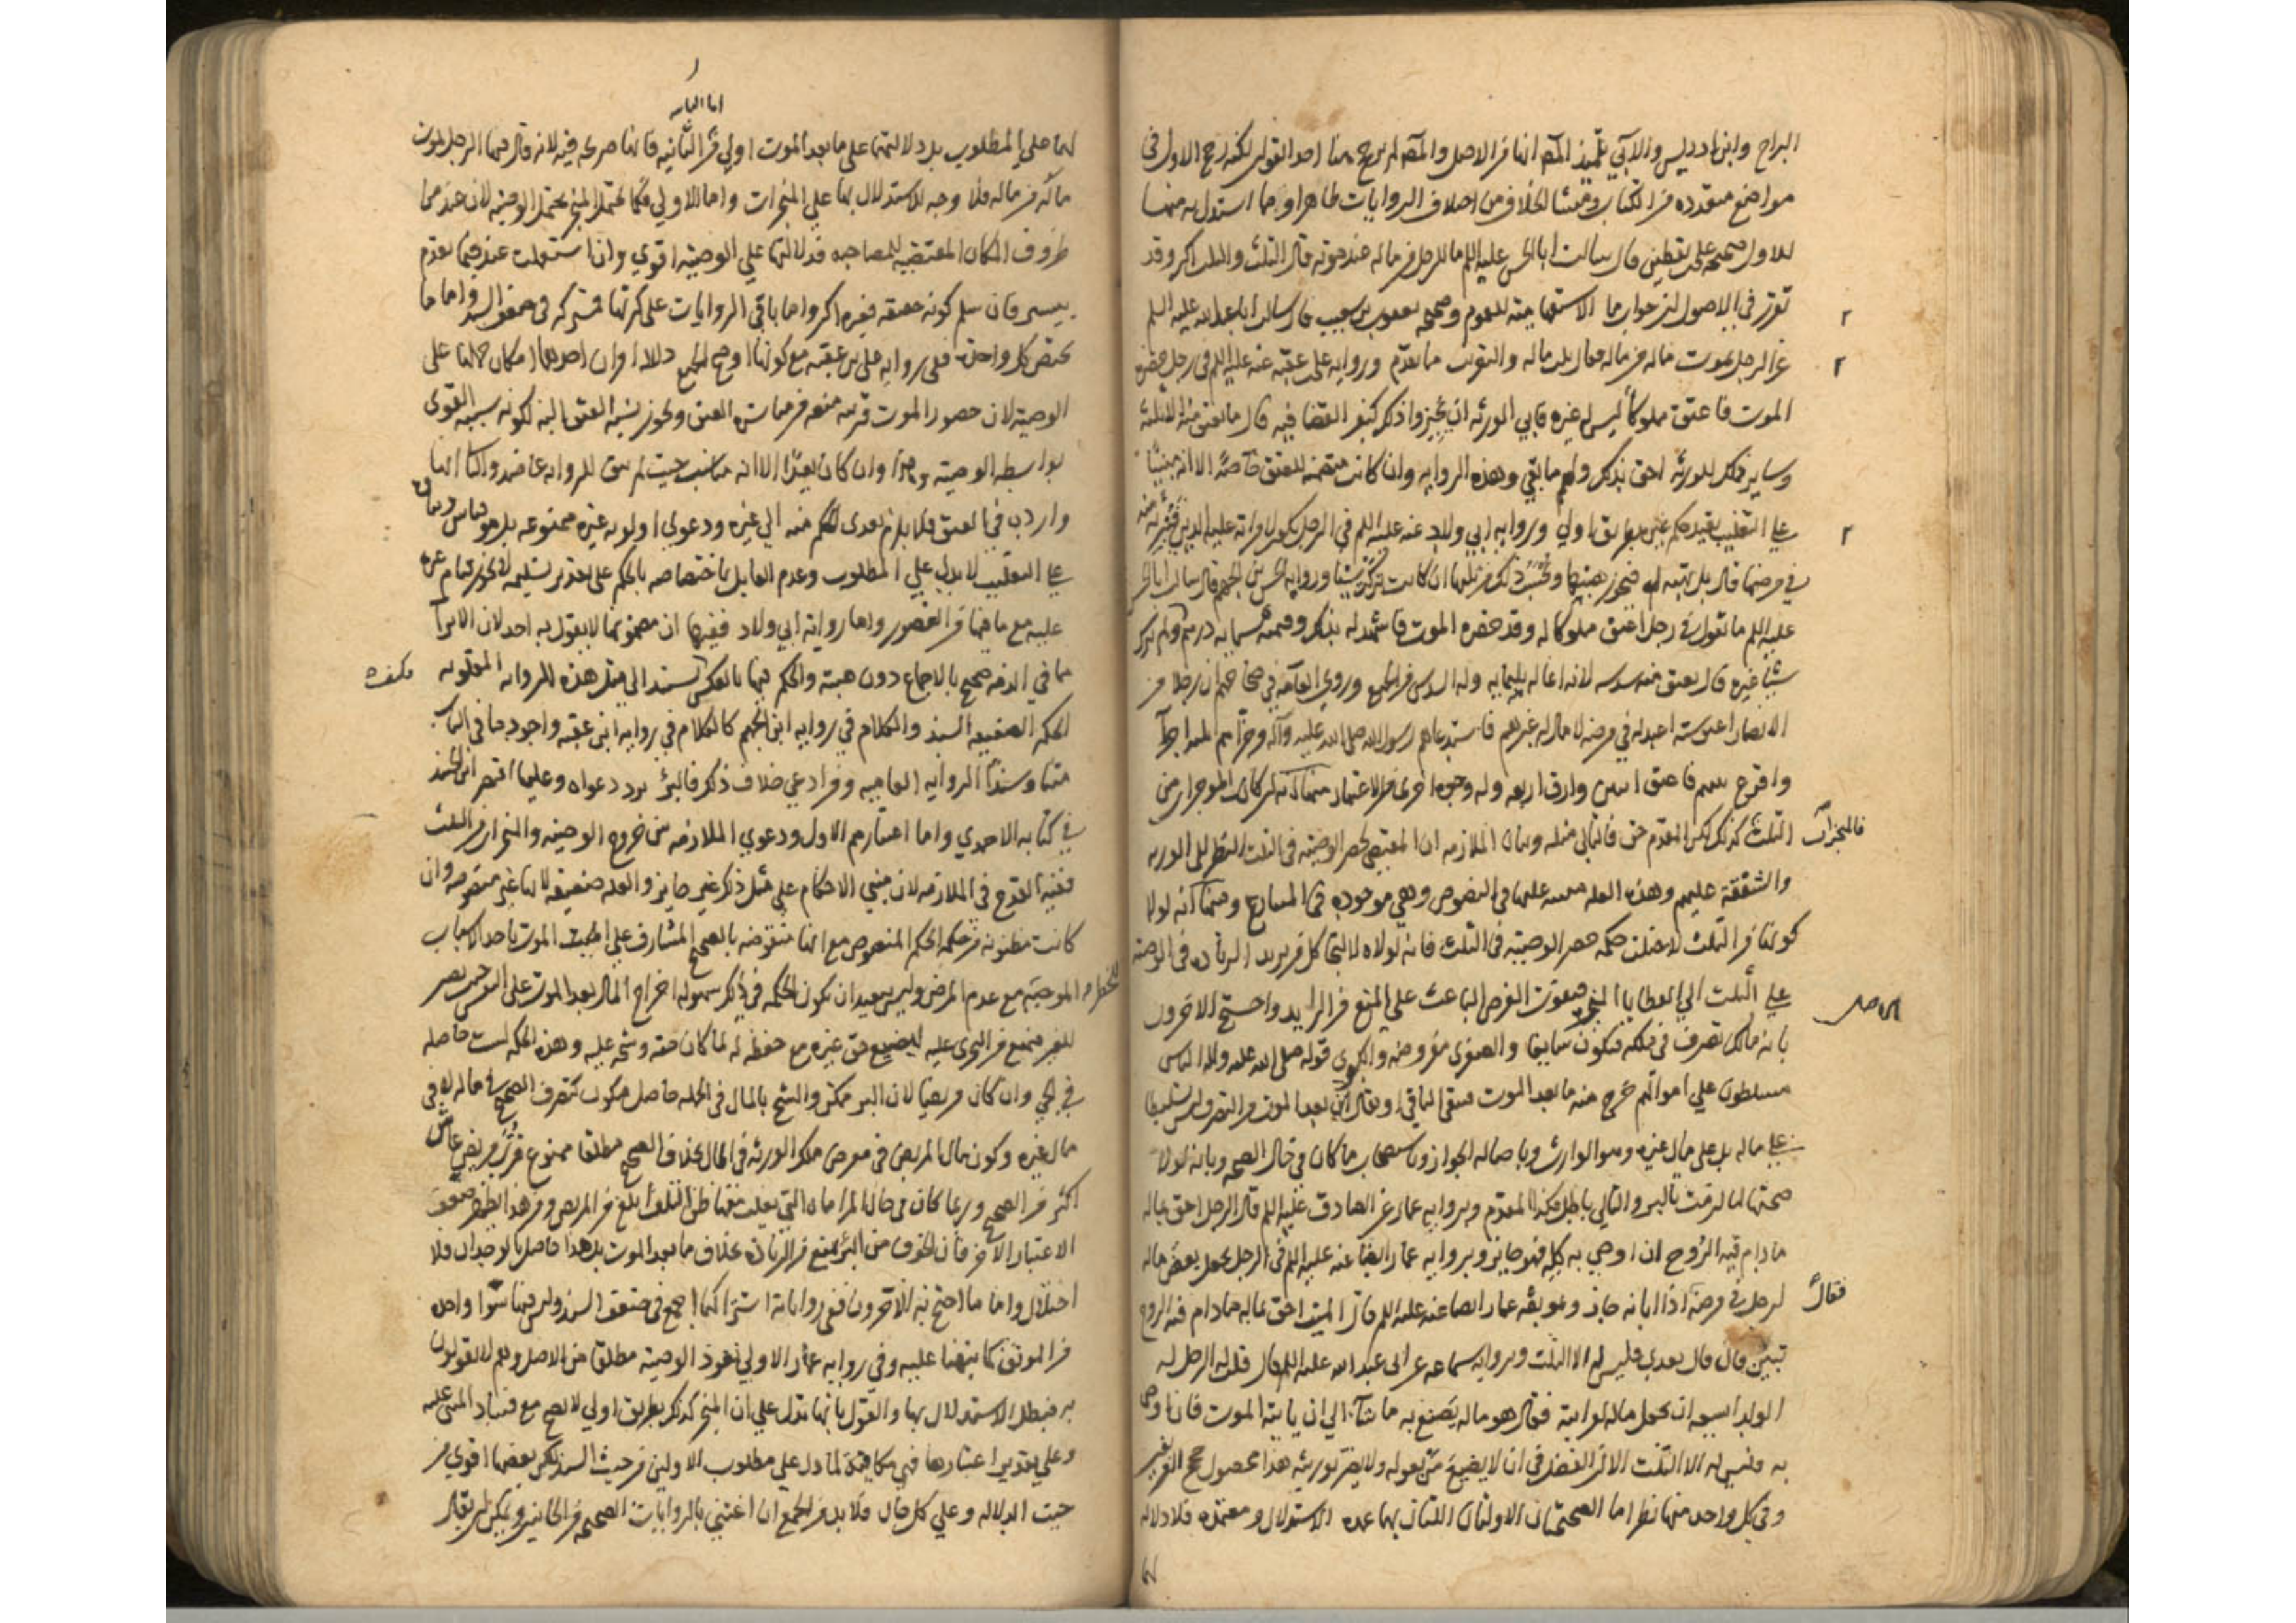 البراج وابن ادريس والآبي تلميذ المصَ انها من الاصل والمصَ لم يرجح هنا احد القولين لكنه رجح الاول في
مواضع متعدده من الكتاب ومنشا الخلاف من اختلاف الروايات ظاهرا فمما استدل به منها
للاول صحيحه علي بن يقطين قال سالت ابا الحسن عليه السلم ما للرجل من ماله عند موته قال الثلث والثلث اكثر وقد
تقرر في الاصول ان جواب ما الاستفهاميه للعموم وصحيحه يعقوب بن شعيب قال سالت ابا عبد الله عليه السلم
عن الرجل يموت ماله من ماله فقال ثلث ماله والتقريب ما تقدم وروايه علي بن عقبه عنه عليه السلم في رجل حضره
الموت فاعتق مملوكاً ليس له غيره فابي الورثه ان يجيزوا ذلك كيف القضا فيه قال ما يعتق منه الا ثلثه
وساير ذلك للورثه احق بذلك ولهم ما بقي وهذه الروايه وان كانت متضمنه للعتق خاصةً الا انه مبنياً
علي التغليب يفيد حكم غيره بطريق اولي وروايه ابي ولاد عنه عليه السلم في الرجل يكون لامراته عليه الدين فتبرئه منه
في مرضها قال بل تهبه له فيجوز هبتها ويحسب ذلك من ثلثها ان كانت تركت شيئا وروايه الحسن بن الجهم قال سالت ابا الحسن
عليه السلم ما تقول في رجل اعتق مملوكا له وقد حضره الموت فاشهد له بذلك وقيمته ستمايه درهم ولم يترك
شيئا غيره قال يعتق منه سدسه لانه انما له ثلثمايه وله السدس من الجميع وروي العامه في صحاحهم ان رجلا من
الانصار اعتق ستة اعبد له في مرضه لا مال له غيرهم فاستدعاهم رسول الله صلى الله عليه وآله وجزأهم ثلثة اجزآ
واقرع بينهم فاعتق اثنين وارق اربعه وله وجوه اخرى من الاعتبار منها انه لو كان الموجز من
فالمنجزات
الثلث كذلك لكن المقدم حق فالتالي مثله وبيان الملازمه ان المقتضي لحصر الوصيه في الثلث النظر الى الورثه
والشفقة عليهم وهذه العله منبه عليها في النصوص وهي موجوده في المتنازع ومنها انه لولا
كونها من الثلث لاختلت حكمه حصر الوصيه في الثلث فانه لولاه لالتجا كل من يريد الزياده في الوصيه
علي الثلث الي العطايا المنجزه فيفوت الغرض الباعث علي المنع من الزايد واحتج الاخرون
بانه مالك تصرف في ملكه فيكون سايغا والصغرى مفروضه والكبرى قوله صلى الله عليه واله الناس
مسلطون علي اموالهم خرج منه ما بعد الموت فيبقى الباقي او يقال ان بعد الموت من التصرف ليس تسليطا
علي ماله بل على مال غيره وهو الوارث وباصاله الجواز وباستصحاب ما كان في حال الصحه وبانه لولا
صحتها لما لزمت بالبرء والتالي باطل فكذا المقدم وبروايه عمار عن الصادق عليه السلم قال الرجل احق بماله
مادام فيه الروح ان اوصي به كله فهو جايز وبروايه عمار ايضا عنه عليه السلم في الرجل يجعل بعض ماله
لرجل في مرضه فقال اذا ابانه جاز وموثقه عمار ايضا عنه عليه السلم قال الميت احق بماله مادام فيه الروح
يبين فان قال بعدي فليس له الا الثلث وبروايه سماعه عن ابي عبد الله عليه السلم قال قلت له الرجل له
الولد ايسعه ان يجعل ماله لقرابته فقال هو ماله يصنع به ما شآء الي ان ياتيه الموت فان اوصى
به فليس له الا الثلث الا ان الفضل في ان لا يضيع من يعوله ولا يضر بورثته هذا محصول حجج الفريقين
وفي كل واحد منها نظر اما الصحيحتان الاولتان اللتان بهما عمده الاستدلال ومعتمده فلا دلاله
اما الثانيه
لهما علي المطلوب بل دلالتهما على ما بعد الموت اولي من الثانيه فانها صريحه فيه لانه قال فيها الرجل يموت
ماله من ماله فلا وجه للاستدلال بها علي المنجزات واما الاولي فكما يحتمل المنجز يحتمل الوصيه لان عند من
ظروف المكان المقتضيه للمصاحبه فدلالتها علي الوصيه اقوي وان استعملت عند فيما تقدم
بيسير فان سلم كونه حقيقه فغيره اكثر واما باقي الروايات على كثرتها فمشتركه في ضعف السند واما ما
يختص كل واحد ففي روايه علي بن عقبه مع كونها اوضح الجميع دلالة او ان احدهما امكان حملها على
الوصيه لان حضور الموت قرينه منعه من مباشره العتق ويجوز نسبه العتق اليه لكونه سببه القوى
بواسطه الوصيه وهذا وان كان بعيداً الا انه مناسب حيث لم يبق للروايه عاضد وثانيا انها
وارده في العتق فلا يلزم تعدى الحكم منه الي غيره ودعوي اولويه غيره ممنوعه بل هو قياس وبناؤه
علي التغليب لا يدل علي المطلوب وعدم القايل باختصاصه بالحكم على تقدير تسليمه لا يجوز قيام غيره
عليه مع ما فيها من القصور واما روايه ابي ولاد ففيها ان مضمونها لا يقول به احد لان الابرآ
مما في الذمه صحيح بالاجماع دون هبته والحكم فيها بالعكس فكيف يستند الي مثل هذه الروايه المقلوبه
الحكم الضعيفه السند والكلام في روايه ابن الجهم كالكلام في روايه ابن عقبه واجود ما في الباب
متنا وسنداً الروايه العاميه ومن ادعي خلاف ذلك فالسبر يرد دعواه وعليها اقتصر ابن الجنيد
في كتابه الاحمدي واما اعتبارهم الاول ودعوي الملازمه بين خروج الوصيه والمنجزات من الثلث
ففيه القدح في الملازمه لان مبني الاحكام علي مثل ذلك غير جايز والعله ضعيفه لانها غير منصوصه وان
كانت مظنونه من حكمه الحكم المنصوص مع انها منقوضه بالصحيح المشارف علي الموت باحد الاسباب
للخطره الموجبه مع عدم المرض وليس ببعيد ان تكون الحكمه في ذلك سهوله اخراج المال بعد الموت على النفس حيث يصير
للغير فيمنع من التجرى عليه ليضيع حق غيره مع حفظه له لما كان حقه وشحه عليه وهذه الحكمه ليست حاصله
في الحي وان كان مريضا لان البرء ممكن والشح بالمال في الجمله حاصل فيكون كتصرف الصحيح في ماله لا في
مال غيره وكون مال المريض في معرض ملك الورثه في الحال بخلاف الصحيح مطلقا ممنوع فرب مريض عاش
اكثر من الصحيح وربما كان في حال المراماه التي يغلب معها ظن التلف ابلغ من المريض ومن هذا يظهر ضعف
الاعتبار الآخر فان الخوف من البرء يمنع من الزياده بخلاف ما بعد الموت بل هذا حاصل بالوجدان فلا
اختلال واما ما احتج به الآخرون ففي رواياته اشتراكها اجمع في ضعف السند وليس فيها سوا واحده
من الموثق كما نبهنا عليه وفي روايه عمار الاولي نفوذ الوصيه مطلقا من الاصل وهم لا يقولون
به فبطل الاستدلال بها والقول بانها تدل علي ان المنجز كذلك بطريق اولي لا يصح مع فساد المبنى عليه
وعلي تقدير اعتبارها فهي مكافئة لما دل علي مطلوب الاولين من حيث السند لكن بعضها اقوي من
حيث الدلاله وعلي كل حال فلا بد من الجمع ان اعتني بالروايات الصحيحه من الجانبين ويمكن ان يقال